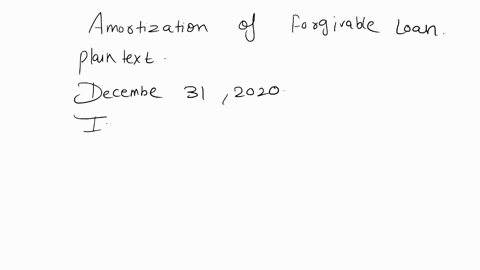 Amortization of Forgivable Loan.
Plain text.
Decembe 31, 2020.
I